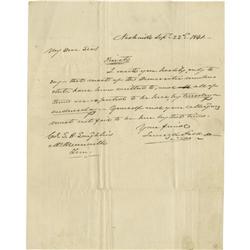 Nashville Sept. 22d. 1841.
My Dear Sir
Private
I write you hastily, only to
say that most of the Democratic members
of the
state have been written to, and all of
them are expected to be here by
yourself and your colleague
must not fail to be here by that time.
Your friend
James K. Polk
Col. S. H. Laughlin
McMinnville
Tenn.